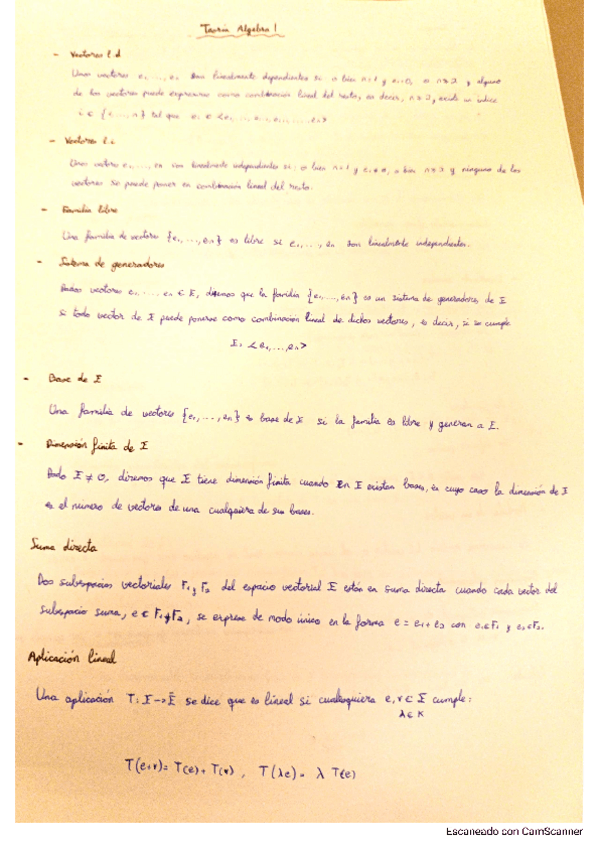 Teoría Algebra I
- Vectores l.d
Unos vectores e₁,...,eₙ son linealmente dependientes si o bien n=1 y e₁=0, o n≥2 y alguno
de los vectores puede expresarse como combinación lineal del resto, es decir, n≥2, existe un índice
i ∈ {1,...,n} tal que
- Vectores l.i
Unos vectores e₁,...,en son linealmente independientes si o bien n=1 y e₁≠0, o bien n≥2 y ninguno de los
vectores se puede poner en combinación lineal del resto.
- Familia libre
Una familia de vectores {e₁,...,en} es libre si e₁,...,en son linealmente independientes.
- Sistema de generadores
Dados vectores e₁,...,en ∈ E, diremos que la familia {e₁,...,en} es un sistema de generadores de E
si todo vector de E puede ponerse como combinación lineal de dichos vectores, es decir, si se cumple
E = <e₁,...,en>
- Base de E
Una familia de vectores {e₁,...,en} es base de E si la familia es libre y generan a E.
- Dimensión finita de E
Dado E ≠ 0, diremos que E tiene dimensión finita cuando en E existan bases, en cuyo caso la dimensión de E
es el número de vectores de una cualquiera de sus bases.
Suma directa
Dos subespacios vectoriales F₁ y F₂ del espacio vectorial E están en suma directa cuando cada vector del
subespacio suma, e ∈ F₁+F₂, se expresa de modo único en la forma e = e₁+e₂ con e₁∈F₁ y e₂∈F₂.
Aplicación lineal
Una aplicación T: E → Ē se dice que es lineal si cualesquiera e,v ∈ E cumple:
λ ∈ K
T(e+v) = T(e) + T(v) , T(λe) = λ T(e)
Escaneado con CamScanner